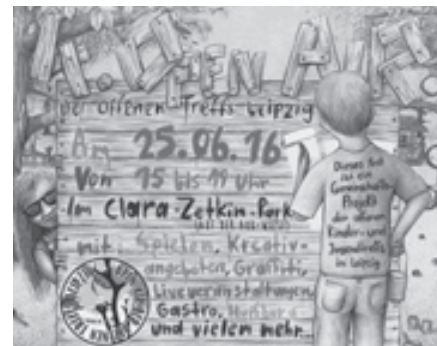 OPEN AIR
der offenen Treffs Leipzig
Am 25.06.16
Von 15 bis 19 Uhr
Im Clara-Zetkin-Park
mit: Spielen, Kreativ-
angeboten, Graffiti,
Liveveranstaltungen,
Gastro,
und vielem mehr...
Dieses Fest
ist ein
Gemeinschafts-
Projekt
der offenen
Kinder- und
Jugendtreffs
in Leipzig